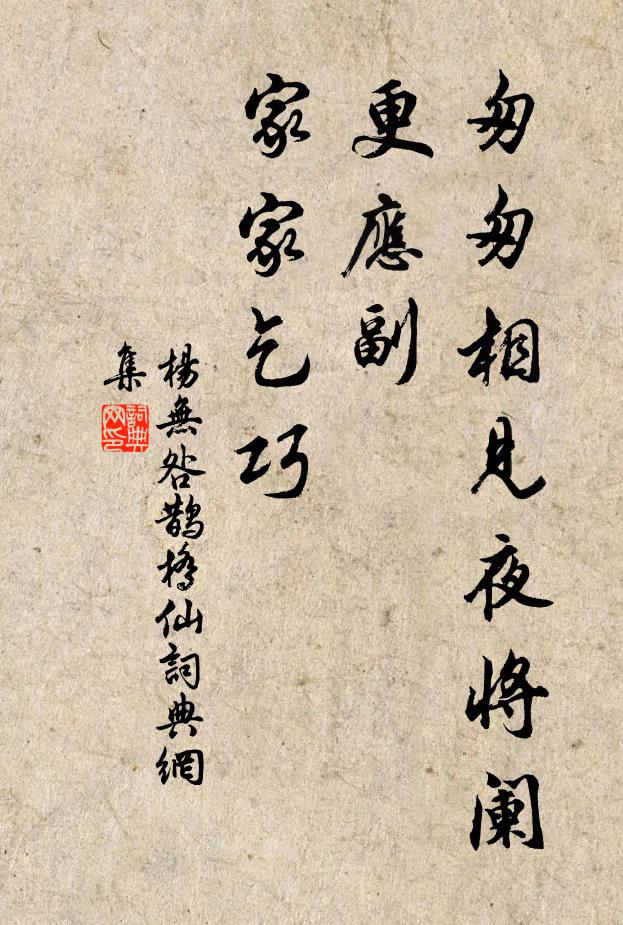 匆匆相見夜將闌
更應副
家家乞巧
楊無咎鵲橋仙詞典網
集
詞典
网印